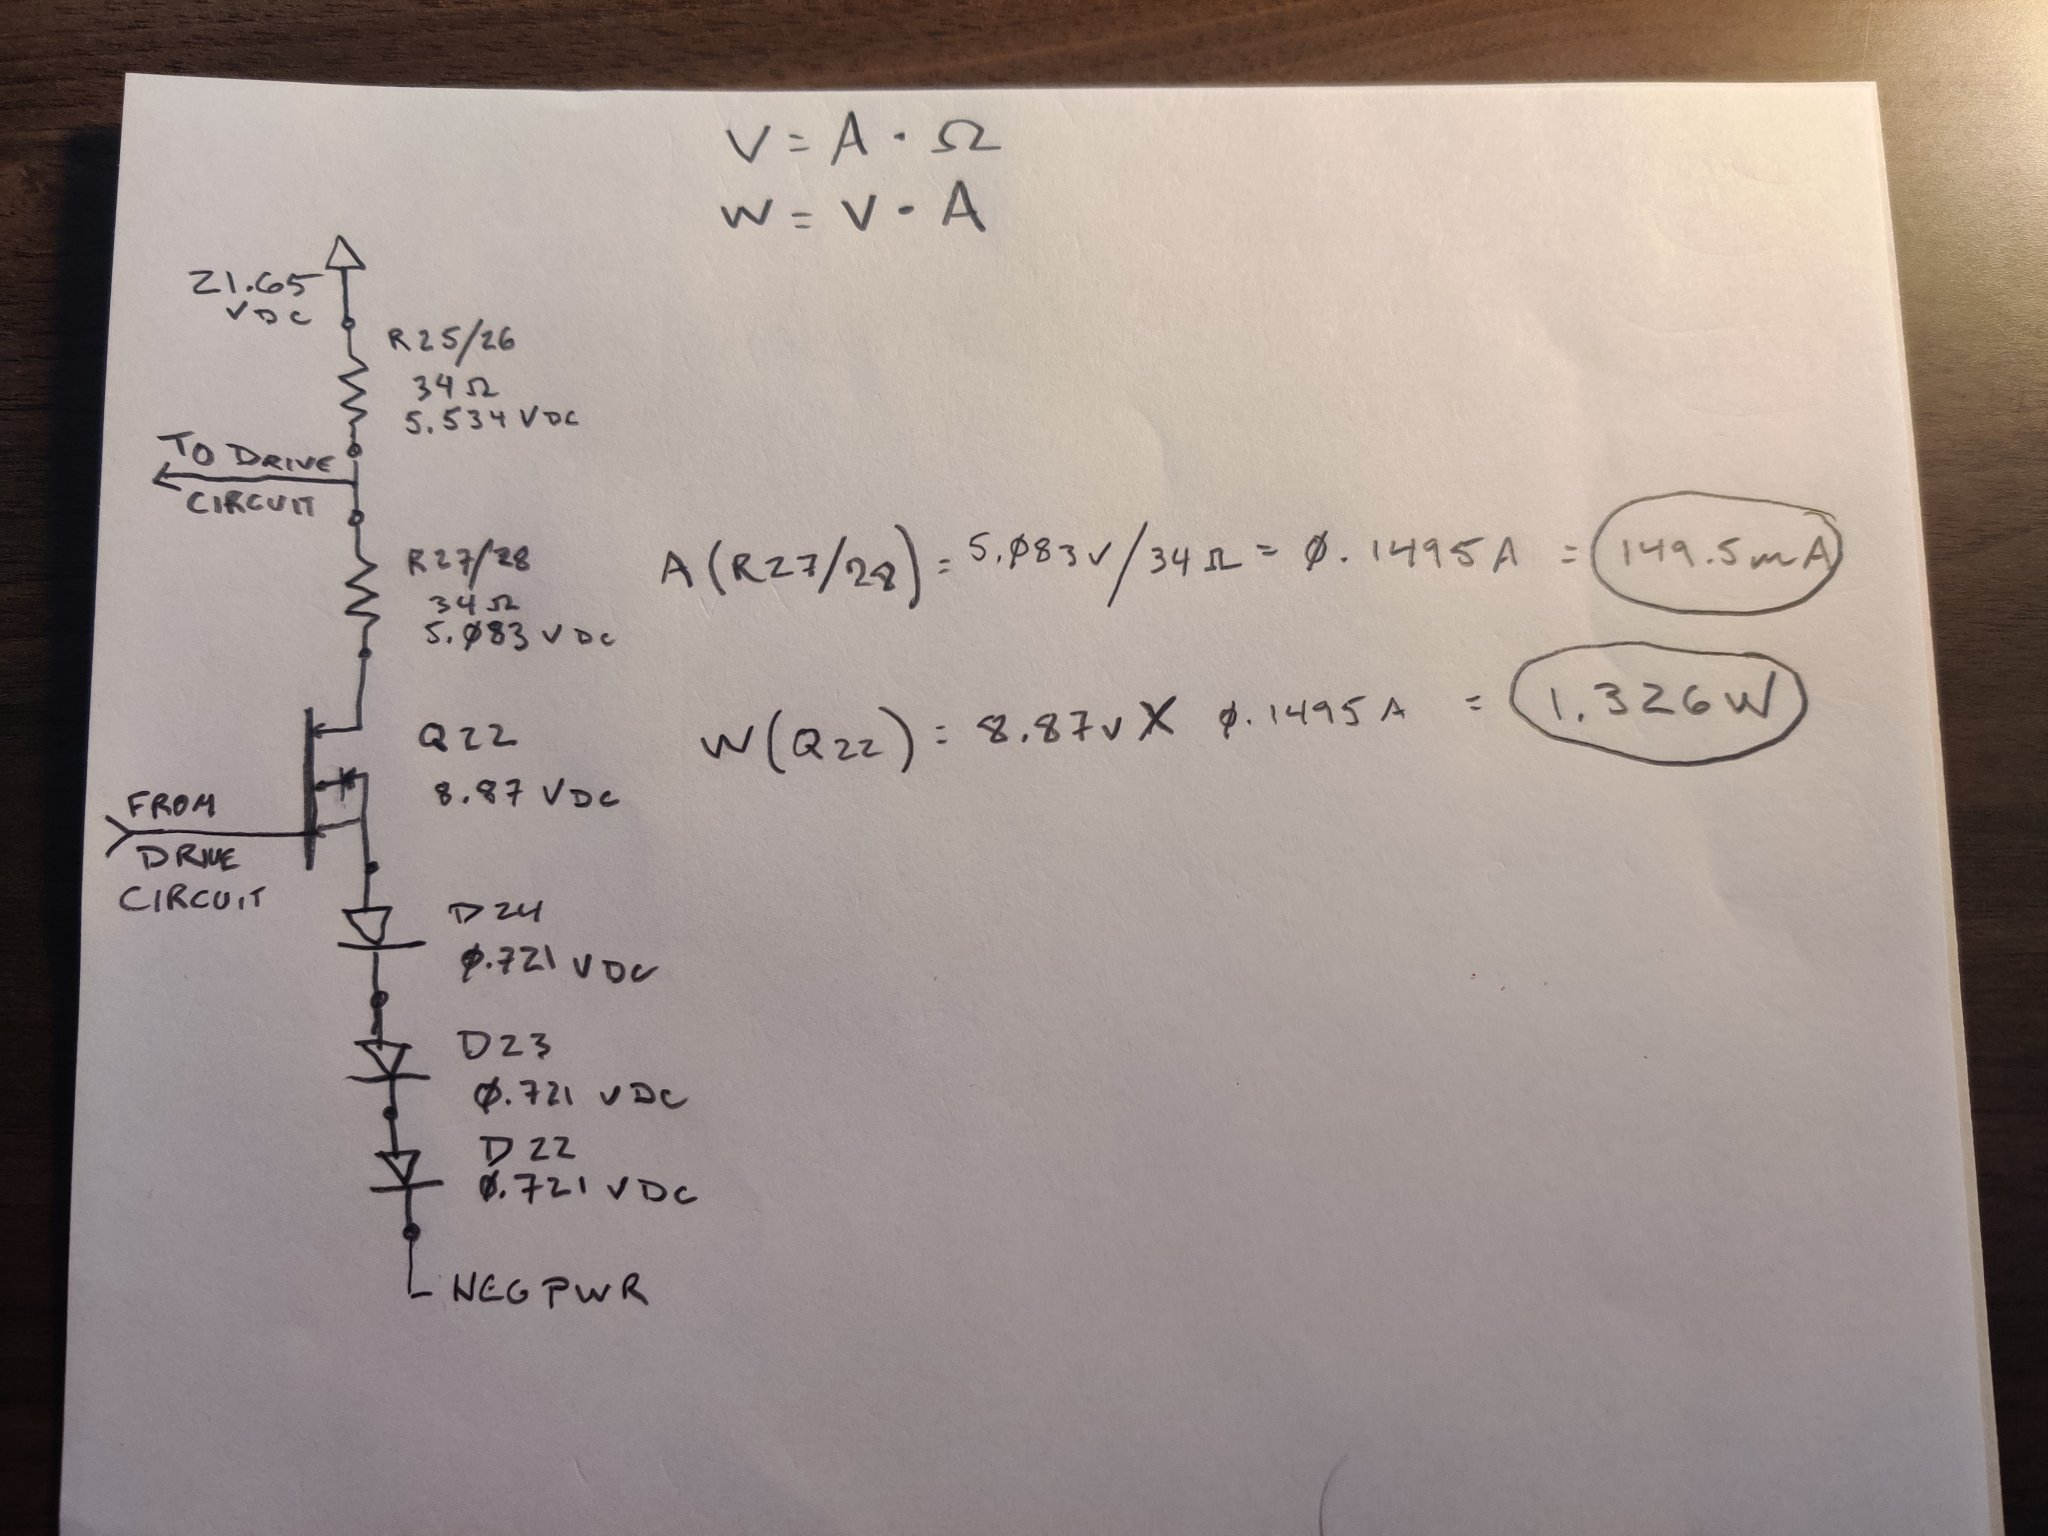 V = A · Ω
W = V · A
21.65
VDC
R25/26
34Ω
5.534 VDC
TO DRIVE
CIRCUIT
R27/28
34Ω
5.083 VDC
A(R27/28) = 5.083V/34Ω = 0.1495A = 149.5mA
Q22
8.87 VDC
W(Q22) = 8.87V X 0.1495A = 1.326W
FROM
DRIVE
CIRCUIT
D24
0.721 VDC
D23
0.721 VDC
D22
0.721 VDC
NEG PWR